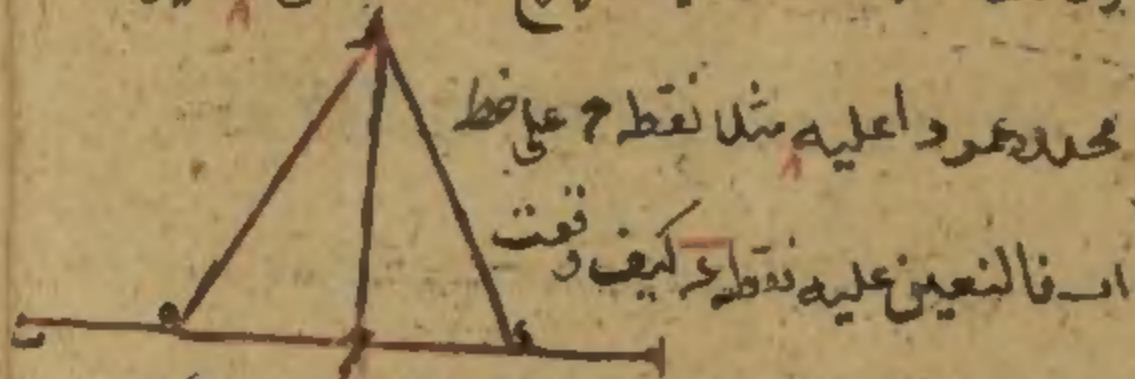 محدود عمودا عليه مثلا نقطة ح على خط
اب فالنعين عليه نقطة ء كيف وقعت
ح
ء
ر
ه
ب
ا